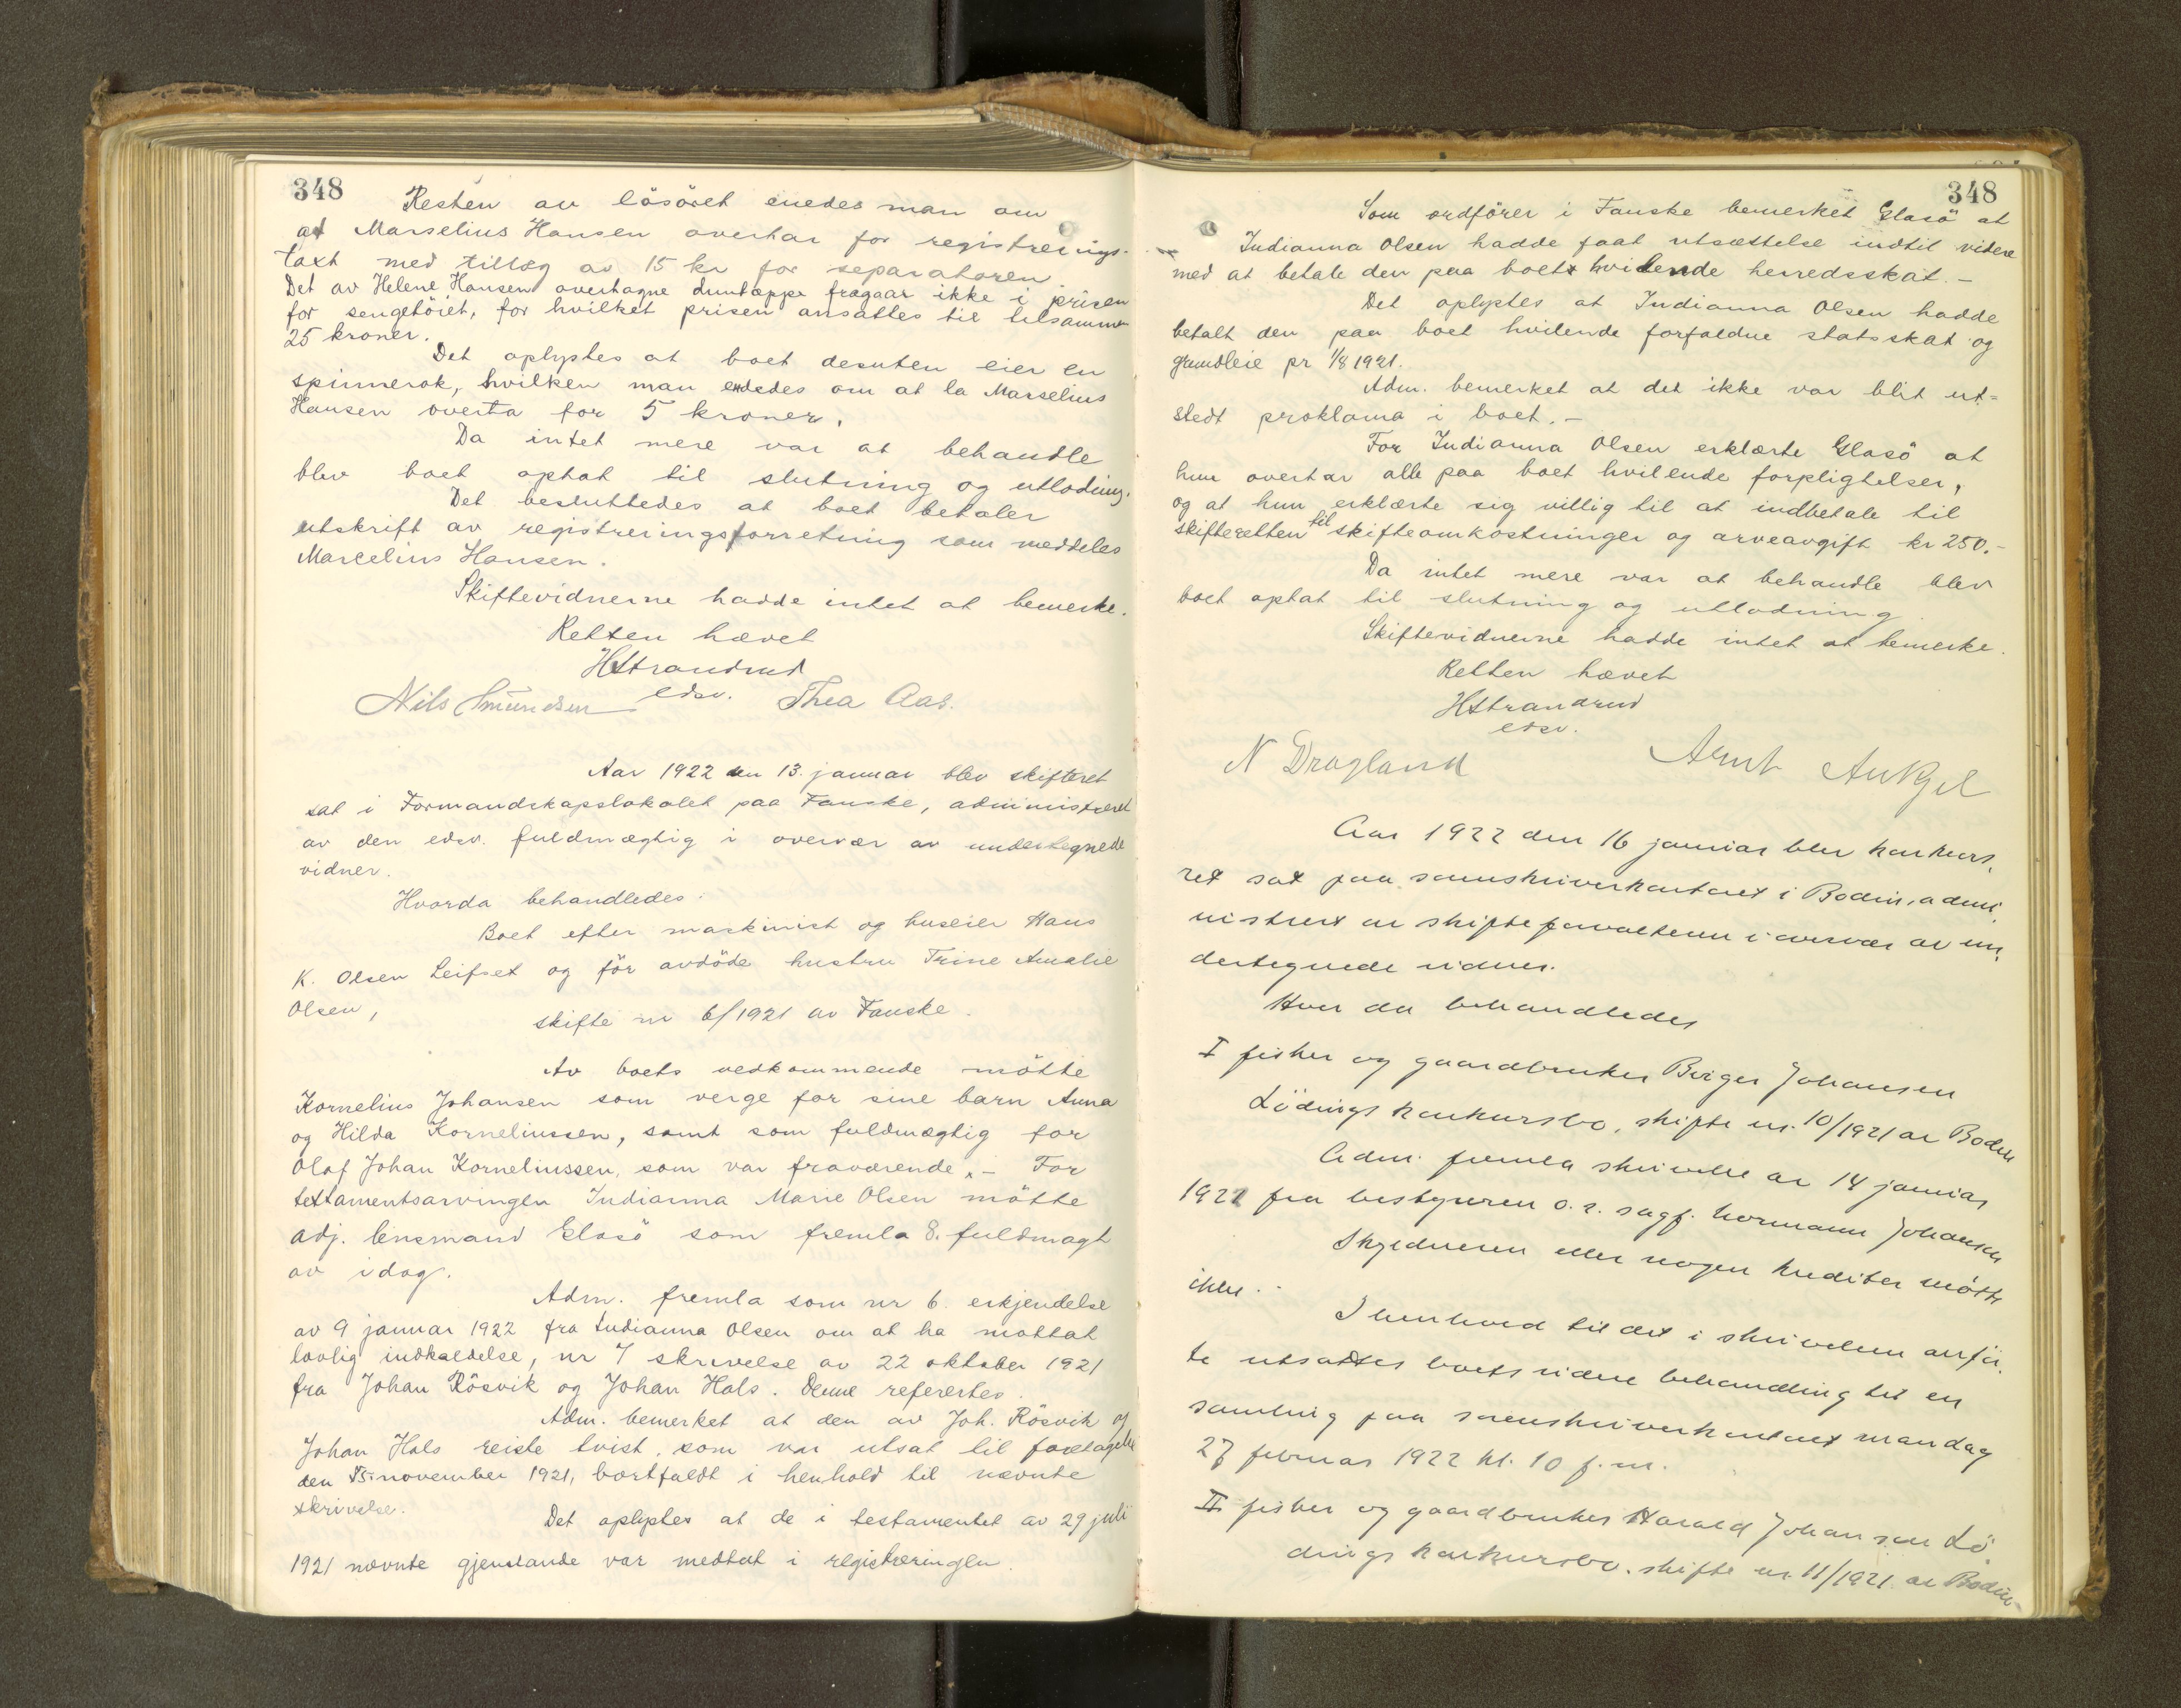 348
Resten av lösöret enedes man om
at Marselius Hansen overtar for registrerings-
takst med tillæg av 15 kr for separatoren
Det av Helene Hansen overtagne duntæppe fragaar ikke i prisen
for sengetöiet, for hvilket prisen ansattes til tilsammen
25 kroner.
Det oplystes at boet desuten eier en
spinnerok, hvilken man enedes om at la Marselius
Hansen overta for 5 kroner.
Da intet mere var at behandle
blev boet optat til slutning og utlodning.
Det besluttedes at boet betaler
utskrift av registreringsforretning som meddeles
Marcelius Hansen.
Skiftevidnerne hadde intet at bemerke.
Retten hævet
HStrandrud
edsv.
Nils Amundsen Thea Aas.
Aar 1922 den 13. januar blev skifteret
sat i Formandskapslokalet paa Fauske, administreret
av den edsv. fuldmægtig i overvær av undertegnede
vidner.
Hvorda behandledes:
Boet efter maskinist og huseier Hans
K. Olsen Leifset og för avdöde hustru Trine Amalie
Olsen,
skifte nr 6/1921 av Fauske.
Av boets vedkommende mötte
Kornelius Johansen som verge for sine barn Anna
og Hilda Korneliussen, samt som fuldmægtig for
Olaf Johan Korneliussen, som var fraværende. – For
testamentsarvingen Indianna Marie Olsen mötte
adj. lensmand Glasö som fremla 8. fuldmagt
av idag.
Adm. fremla som nr 6. erkjendelse
av 9 januar 1922 fra Indianna Olsen om at ha mottat
lovlig indkaldelse, nr 7 skrivelse av 22 oktober 1921
fra Johan Rösvik og Johan Hals. Denne referertes.
Adm. bemerket at den av Joh. Rösvik og
Johan Hals reiste tvist, som var utsat til foretagelse
den 15. november 1921, bortfaldt i henhold til nævnte
skrivelse.
Det oplystes at de i testamentet av 29 juli
1921 nævnte gjenstande var medtat i registreringen.
348
Som ordförer i Fauske bemerket Glasö at
Indianna Olsen hadde faat utsættelse indtil videre
med at betale den paa boet hvilende herredsskat. –
Det oplystes at Indianna Olsen hadde
betalt den paa boet hvilende forfaldne statsskat og
grundleie pr 1/8 1921.
Adm. bemerket at det ikke var blit ut=
stedt proklama i boet. –
For Indianna Olsen erklærte Glasö at
hun overtar alle paa boet hvilende forpligtelser,
og at hun erklærte sig villig til at indbetale til
skifteretten til skifteomkostninger og arveavgift kr 250.–
Da intet mere var at behandle blev
boet optat til slutning og utlodning
Skiftevidnerne hadde intet at bemerke.
Retten hævet
HStrandrud
edsv.
N Dragland Arnt
Aar 1922 den 16 januar blev konkurs-
ret sat paa sorenskriverkontoret i Bodin, admi-
nistrert av skifteforvalteren i overvær av un-
dertegnede vidner.
Hvor da behandledes
I fisker og gaardbruker Birger Johansen
Lödings konkursbo, skifte nr. 10/1921 av Bodin
Adm. fremla skrivelse av 14 januar
1922 fra bestyreren o.r. sagf. Hermann Johansen
Skyldneren eller nogen kreditor mötte
ikke. –
I henhold til det i skrivelsen anför-
te utsattes boets videre behandling til en
samling paa sorenskriverkontoret mandag
27 februar 1922 kl. 10 f.m.
II fisker og gaardbruker Harald Johansen Lö-
dings konkursbo, skifte nr. 11/1921 av Bodin